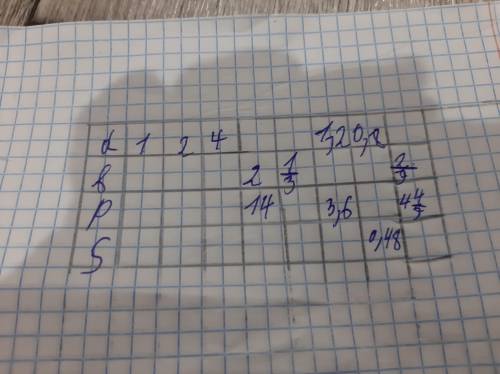 a 1 2 4 1,2 0,8
в 2 1/3 2/9
P 14 3,6 4 4/9
S 0,48